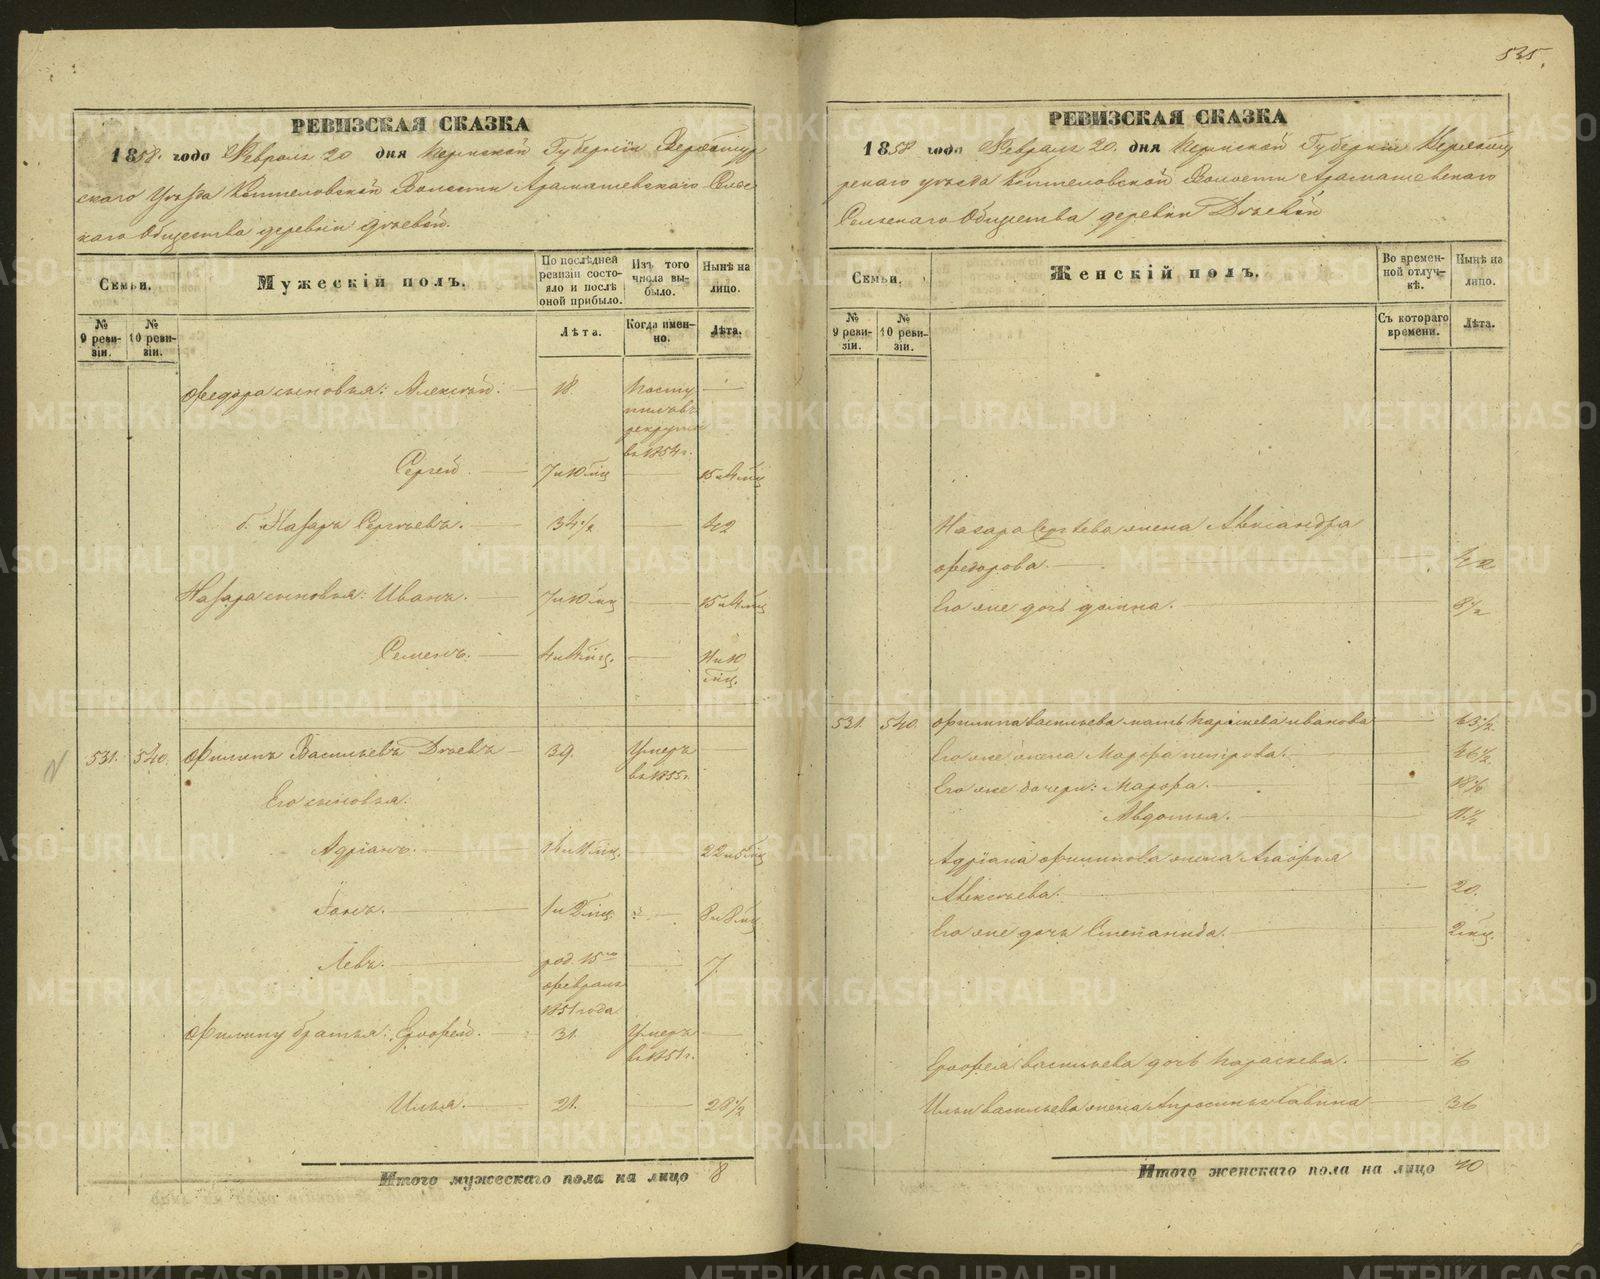 535.
РЕВИЗСКАЯ СКАЗКА
1858. года Февраля 20 дня Пермской Губернiи Верхотур
скаго Уѣзда Коптеловской Волости Арамашевскаго Сель
скаго Общества деревни
Семьи.
Мужескiй полъ.
По послѣдней ревизiи состояло и послѣ оной прибыло.
Изъ того числа выбыло.
Нынѣ на лицо.
№ 9 ревизiи.
№ 10 ревизiи.
Лѣта.
Когда именно.
Лѣта.
Федора сыновья: Алексѣй. 18. Посту
пилъ въ
рекруты
въ 1854 г.
Сергѣй. 7 и 10 мц 15 и 4 мц
б. Назаръ Сергѣевъ. 34 1/2 42
Назара сыновья: Иванъ. 7 и 10 мц 15 и 4 мц
Семенъ. 4 и 4 мц. 11 и 10
мц.
531. 540. Филипъ Васильевъ 39. Умеръ
въ 1855 г.
Его сыновья.
Адрiанъ. 14 и 11 мц. 22 и 5 мц
1 и 2 мц. 8 и 8 мц
Левъ. род. 15го 7.
февраля
1851 года
Филипу братья: Ерофей. 31. Умеръ
въ 1851 г.
Илья. 21. 28 1/2
Итого мужескаго пола на лицо 8
РЕВИЗСКАЯ СКАЗКА
1858 года Февраля 20. дня Пермской Губернiи Верхоту
рскаго уѣзда Коптеловской Волости Арамашевскаго
Сельскаго Общества деревни
Семьи.
Женскiй полъ.
Во временной отлучкѣ.
Нынѣ на лицо.
№ 9 ревизiи.
№ 10 ревизiи.
Съ котораго времени.
Лѣта.
Назара Сергѣева жена Александра
Федорова. 42
Его же дочь 8 1/2
531. 540. Филипа Васильева мать Параскева Иванова 63 1/2.
Его же жена Марфа Петрова. 46 1/2.
Его же дочери: Марфа. 18
Авдотья. 11
Адрiана Филипова жена Агафья
Алексѣева. 20.
Его же дочь Степанида. 2 мц.
Ерофея Васильева дочь Параскева. 6
Ильи Васильева жена Апросинья Савина 36
Итого женскаго пола на лицо 10
METRIKI.GASO-URAL.RU